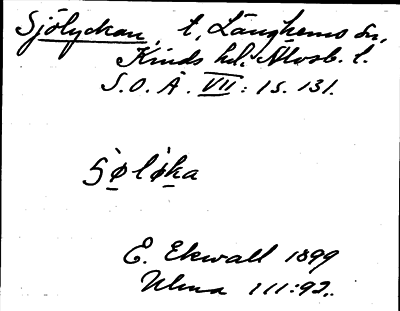 Sjölyckan, t, Länghems sn,
Kinds hd. Älvsb. l.
S.O.Ä. VII: 1 s. 131.
Sø̀lø̀ka
E. Ekwall 1899
Ulma 111:92.